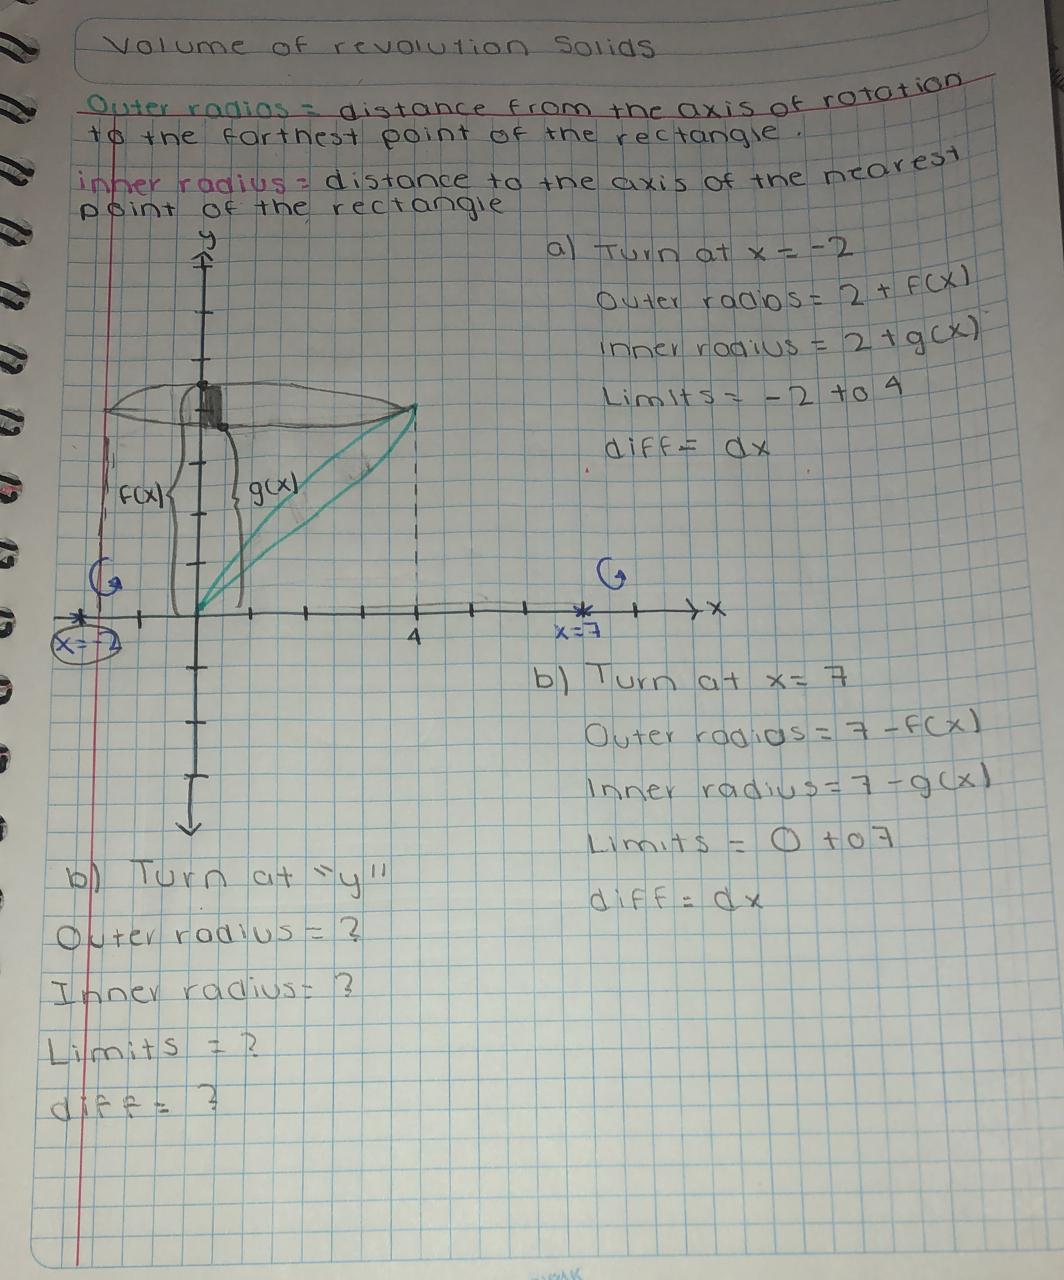 Volume of revolution Solids
Outer radios = distance from the axis of rotation
to the farthest point of the rectangle.
inner radius = distance to the axis of the nearest
point of the rectangle
y
a) Turn at x = -2
Outer radios = 2 + f(x)
inner radius = 2 + g(x)
Limits = -2 to 4
diff = dx
f(x)
g(x)
x
x=-2
4
x=7
b) Turn at x = 7
Outer radios = 7 - f(x)
Inner radius = 7 - g(x)
Limits = 0 to 7
diff = dx
b) Turn at "y"
Outer radius = ?
Inner radius = ?
Limits = ?
diff = ?